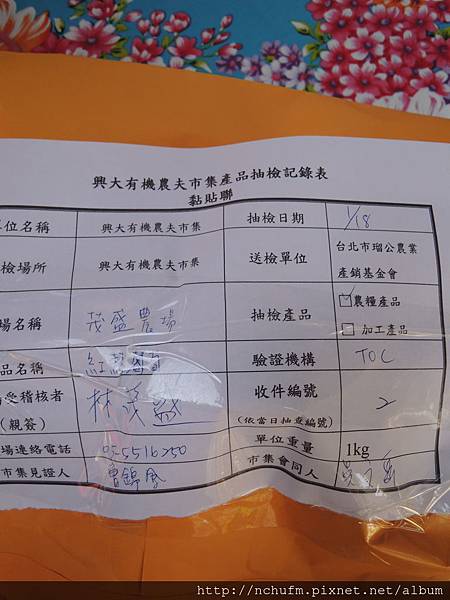 興大有機農夫市集產品抽檢記錄表
黏貼聯
單位名稱 興大有機農夫市集 抽檢日期 1/18
檢場所 興大有機農夫市集 送檢單位 台北市瑠公農業
產銷基金會
場名稱 茂盛農場 抽檢產品 ☑農糧產品
☐ 加工產品
品名稱 驗證機構 TOC
受稽核者 林茂盛 收件編號 2
(親簽) (依當日抽意編號)
場連絡電話 03-5516250 單位重量 1kg
市集見證人 曾錦 市集會同人
http://nchufm.pixnet.net/album